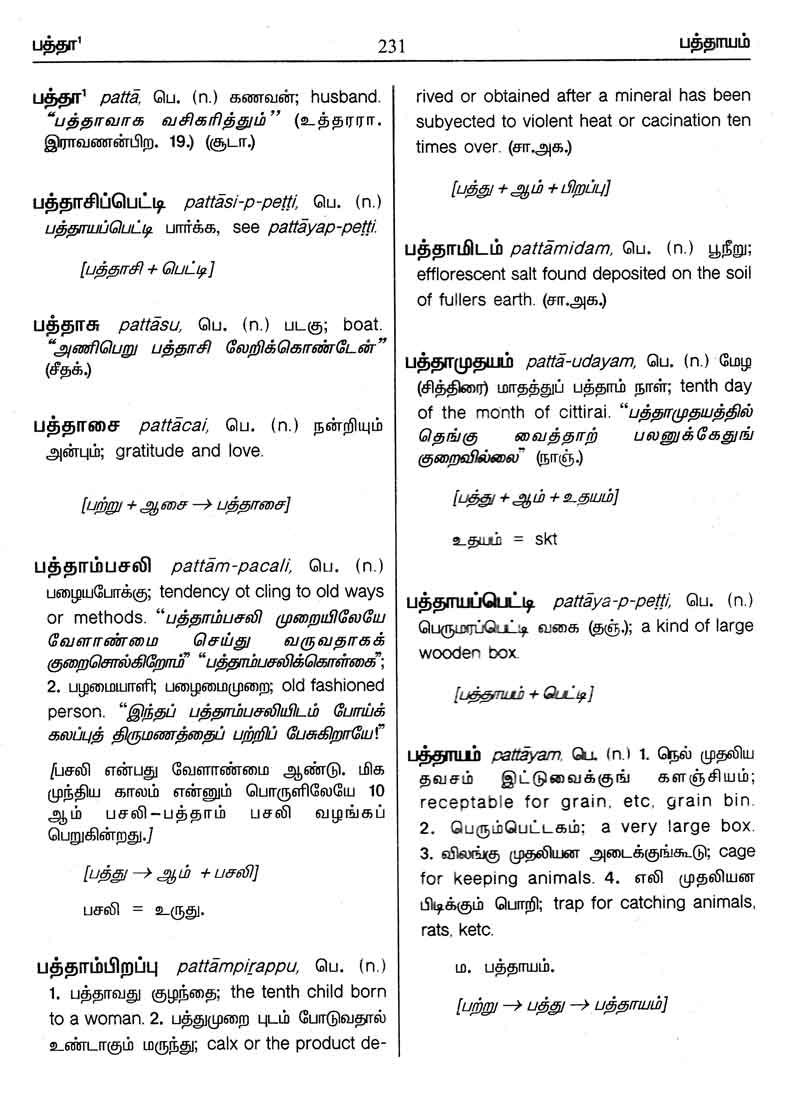 பத்தா¹ 231 பத்தாயம்
பத்தா¹ pattā, பெ. (n.) கணவன்; husband.
“பத்தாவாக வசிகரித்தும்” (உத்தரரா.
இராவணன்பிற. 19.) (சூடா.)
பத்தாசிப்பெட்டி pattāsi-p-peṭṭi, பெ. (n.)
பத்தாயப்பெட்டி பார்க்க, see pattāyap-peṭṭi.
[பத்தாசி + பெட்டி]
பத்தாசு pattāsu, பெ. (n.) படகு; boat.
“அணிபெறு பத்தாசி லேறிக்கொண்டேன்”
(சீதக்.)
பத்தாசை pattācai, பெ. (n.) நன்றியும்
அன்பும்; gratitude and love.
[பற்று + ஆசை → பத்தாசை]
பத்தாம்பசலி pattām-pacali, பெ. (n.)
பழையபோக்கு; tendency ot cling to old ways
or methods. “பத்தாம்பசலி முறையிலேயே
வேளாண்மை செய்து வருவதாகக்
குறைசொல்கிறோம்” “பத்தாம்பசலிக்கொள்கை”;
2. பழமையாளி; பழைமைமுறை; old fashioned
person. “இந்தப் பத்தாம்பசலியிடம் போய்க்
கலப்புத் திருமணத்தைப் பற்றிப் பேசுகிறாயே!”
[பசலி என்பது வேளாண்மை ஆண்டு. மிக
முந்திய காலம் என்னும் பொருளிலேயே 10
ஆம் பசலி-பத்தாம் பசலி வழங்கப்
பெறுகின்றது.]
[பத்து → ஆம் + பசலி]
பசலி = உருது.
பத்தாம்பிறப்பு pattāmpiṟappu, பெ. (n.)
1. பத்தாவது குழந்தை; the tenth child born
to a woman. 2. பத்துமுறை புடம் போடுவதால்
உண்டாகும் மருந்து; calx or the product de-
rived or obtained after a mineral has been
subyected to violent heat or cacination ten
times over. (சா.அக.)
[பத்து + ஆம் + பிறப்பு]
பத்தாமிடம் pattāmidam, பெ. (n.) பூநீறு;
efflorescent salt found deposited on the soil
of fullers earth. (சா.அக.)
பத்தாமுதயம் pattā-udayam, பெ. (n.) மேழ
(சித்திரை) மாதத்துப் பத்தாம் நாள்; tenth day
of the month of cittirai. “பத்தாமுதயத்தில்
தெங்கு வைத்தாற் பலனுக்கேதுங்
குறைவில்லை” (நாஞ்.)
[பத்து + ஆம் + உதயம்]
உதயம் = skt
பத்தாயப்பெட்டி pattāya-p-peṭṭi, பெ. (n.)
பெருமரப்பெட்டி வகை (தஞ்.); a kind of large
wooden box.
[பத்தாயம் + பெட்டி]
பத்தாயம் pattāyam, பெ. (n.) 1. நெல் முதலிய
தவசம் இட்டுவைக்குங் களஞ்சியம்;
receptable for grain, etc, grain bin.
2. பெரும்பெட்டகம்; a very large box.
3. விலங்கு முதலியன அடைக்குங்கூடு; cage
for keeping animals. 4. எலி முதலியன
பிடிக்கும் பொறி; trap for catching animals,
rats, ketc.
ம. பத்தாயம்.
[பற்று → பத்து → பத்தாயம்]